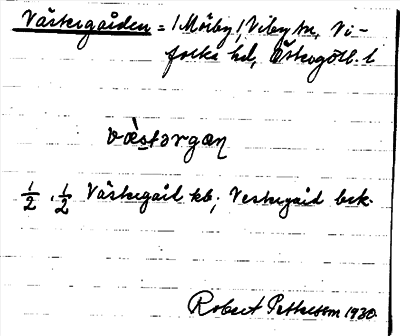 Västergården = (Mörby) Viby sn, Vi-
folka hd, Östergötl. l
vɛ̀stərgɑn
1/2, 1/2 Västergård kb; Vestergård bek.
Robert Pettersson 1930